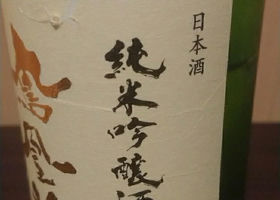 日本酒
純米吟醸酒
鳳凰